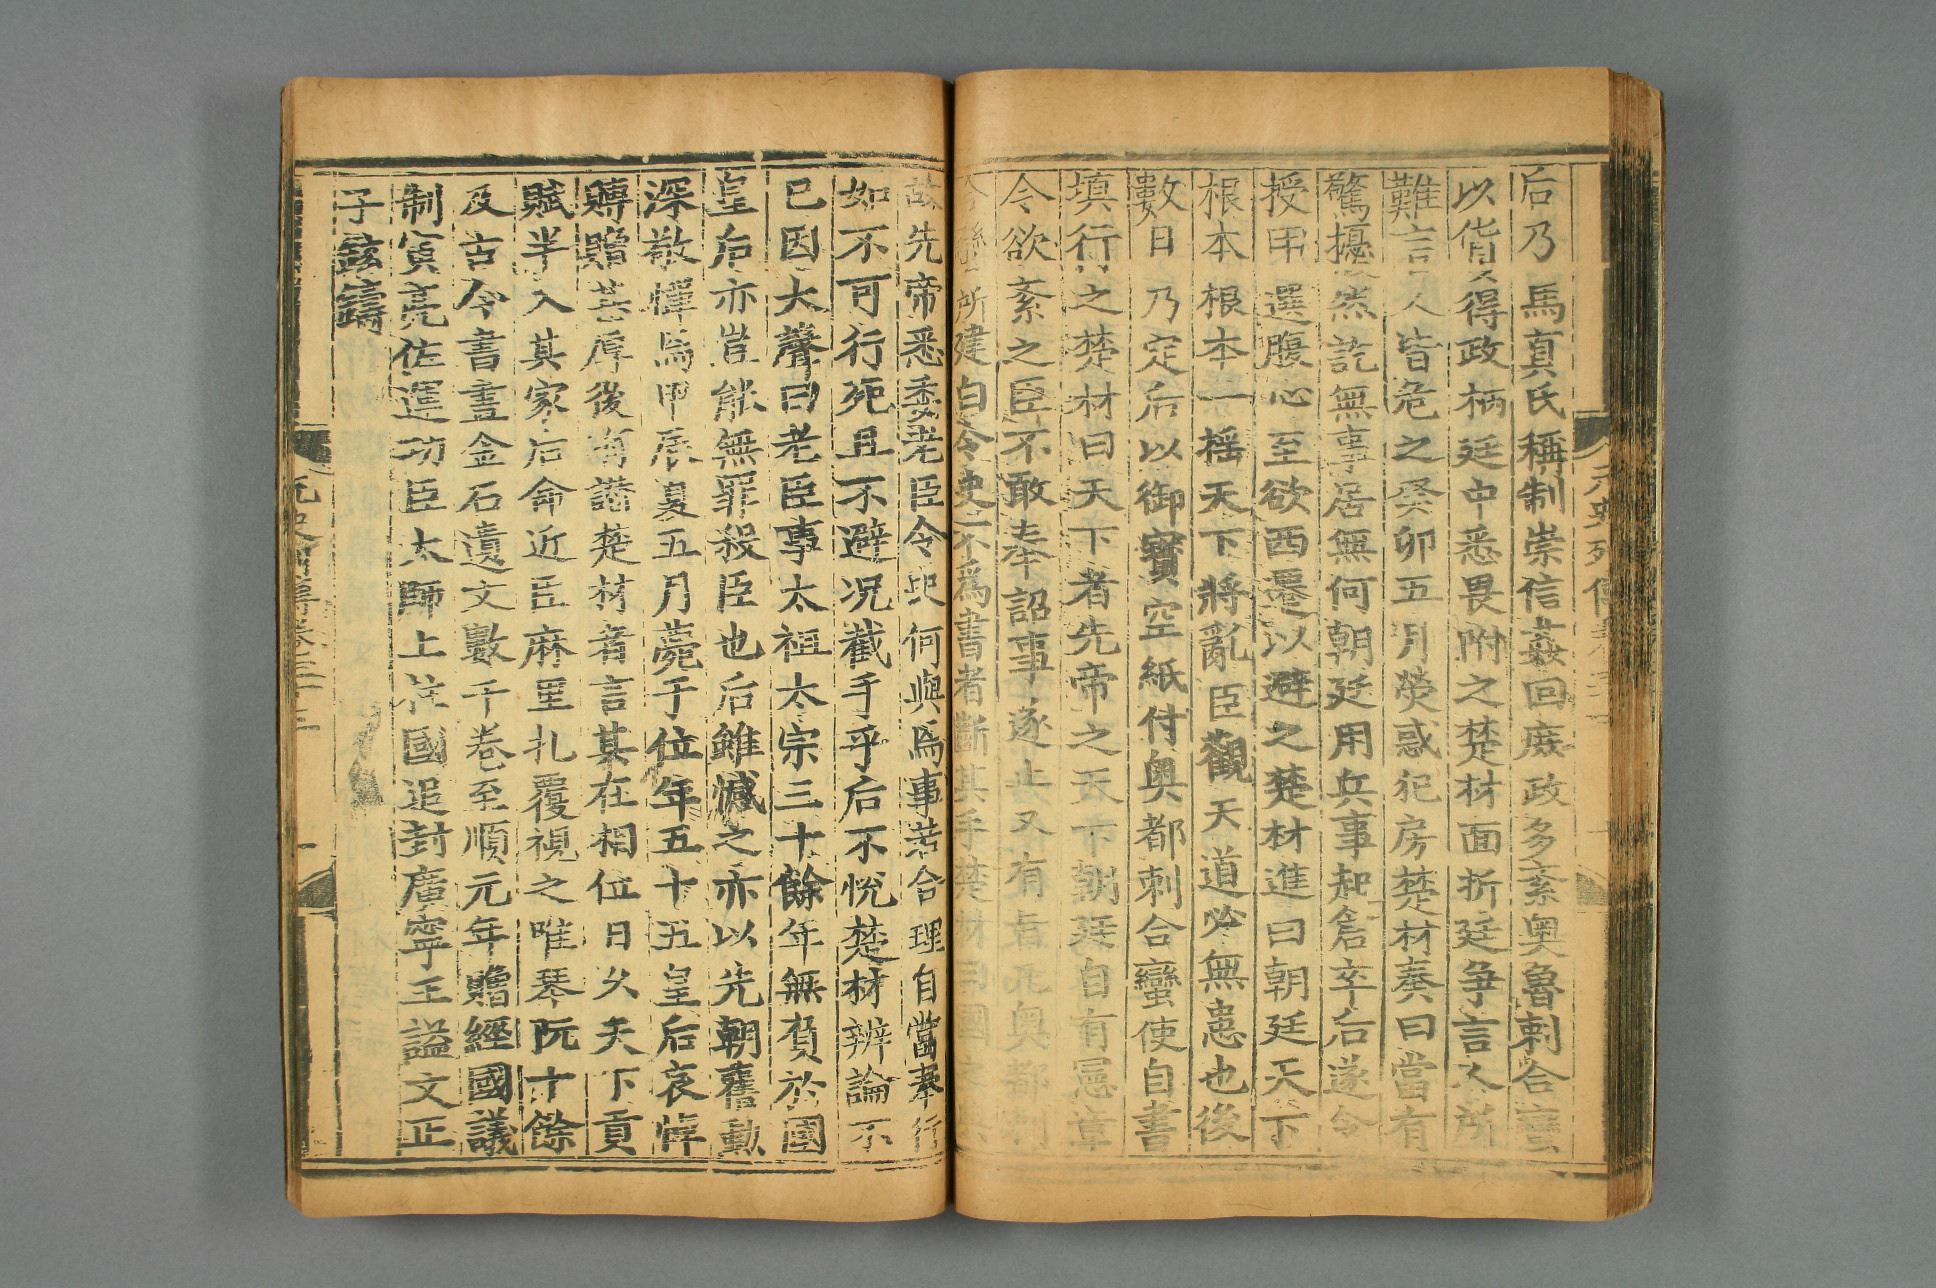 后乃馬真氏稱制崇信姦回庶政多紊奧魯剌合蠻
以貨得政柄廷中悉畏附之楚材面折廷爭言人所
難言人皆危之癸卯五月熒惑犯房楚材奏曰當有
驚擾然訖無事居無何朝廷用兵事起倉卒后遂令
授甲選腹心至欲西遷以避之楚材進曰朝廷天下
根本根本一搖天下將亂臣觀天道必無患也後
數日乃定后以御寶空紙付奧都剌合蠻使自書
填行之楚材曰天下者先帝之天下朝廷自有憲章
今欲紊之臣不敢奉詔事遂止又有旨凡奧都剌
合蠻所建白令史不為書者斷其手楚材曰國之
故先帝悉委老臣令史何與焉事若合理自當奉行
如不可行死且不避况截手乎后不悅楚材辨論不
已因大聲曰老臣事太祖太宗三十餘年無負於國
皇后亦豈能無罪殺臣也后雖憾之亦以先朝舊勳
深敬憚焉甲辰夏五月薨于位年五十五皇后哀悼
賻贈甚厚後有譖楚材者言其在相位日久天下貢
賦半入其家后命近臣麻里扎覆視之唯琴阮十餘
及古今書畫金石遺文數千卷至順元年贈經國議
制寅亮佐運功臣太師上柱國追封廣寧王謚文正
子鉉鑄
元史列傳卷三十三